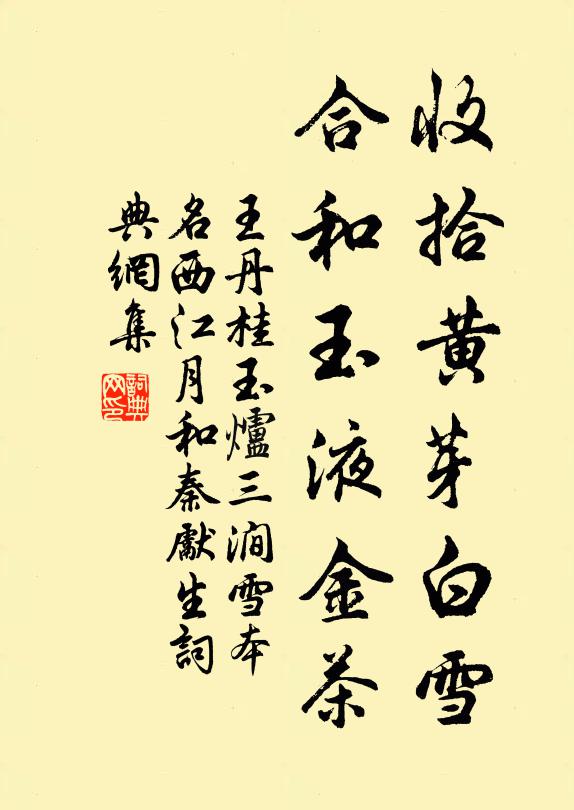 收拾黃芽白雪
合和玉液金茶
王丹桂玉爐三澗雪本
名西江月和秦獻生詞
典網集
詞典
网印